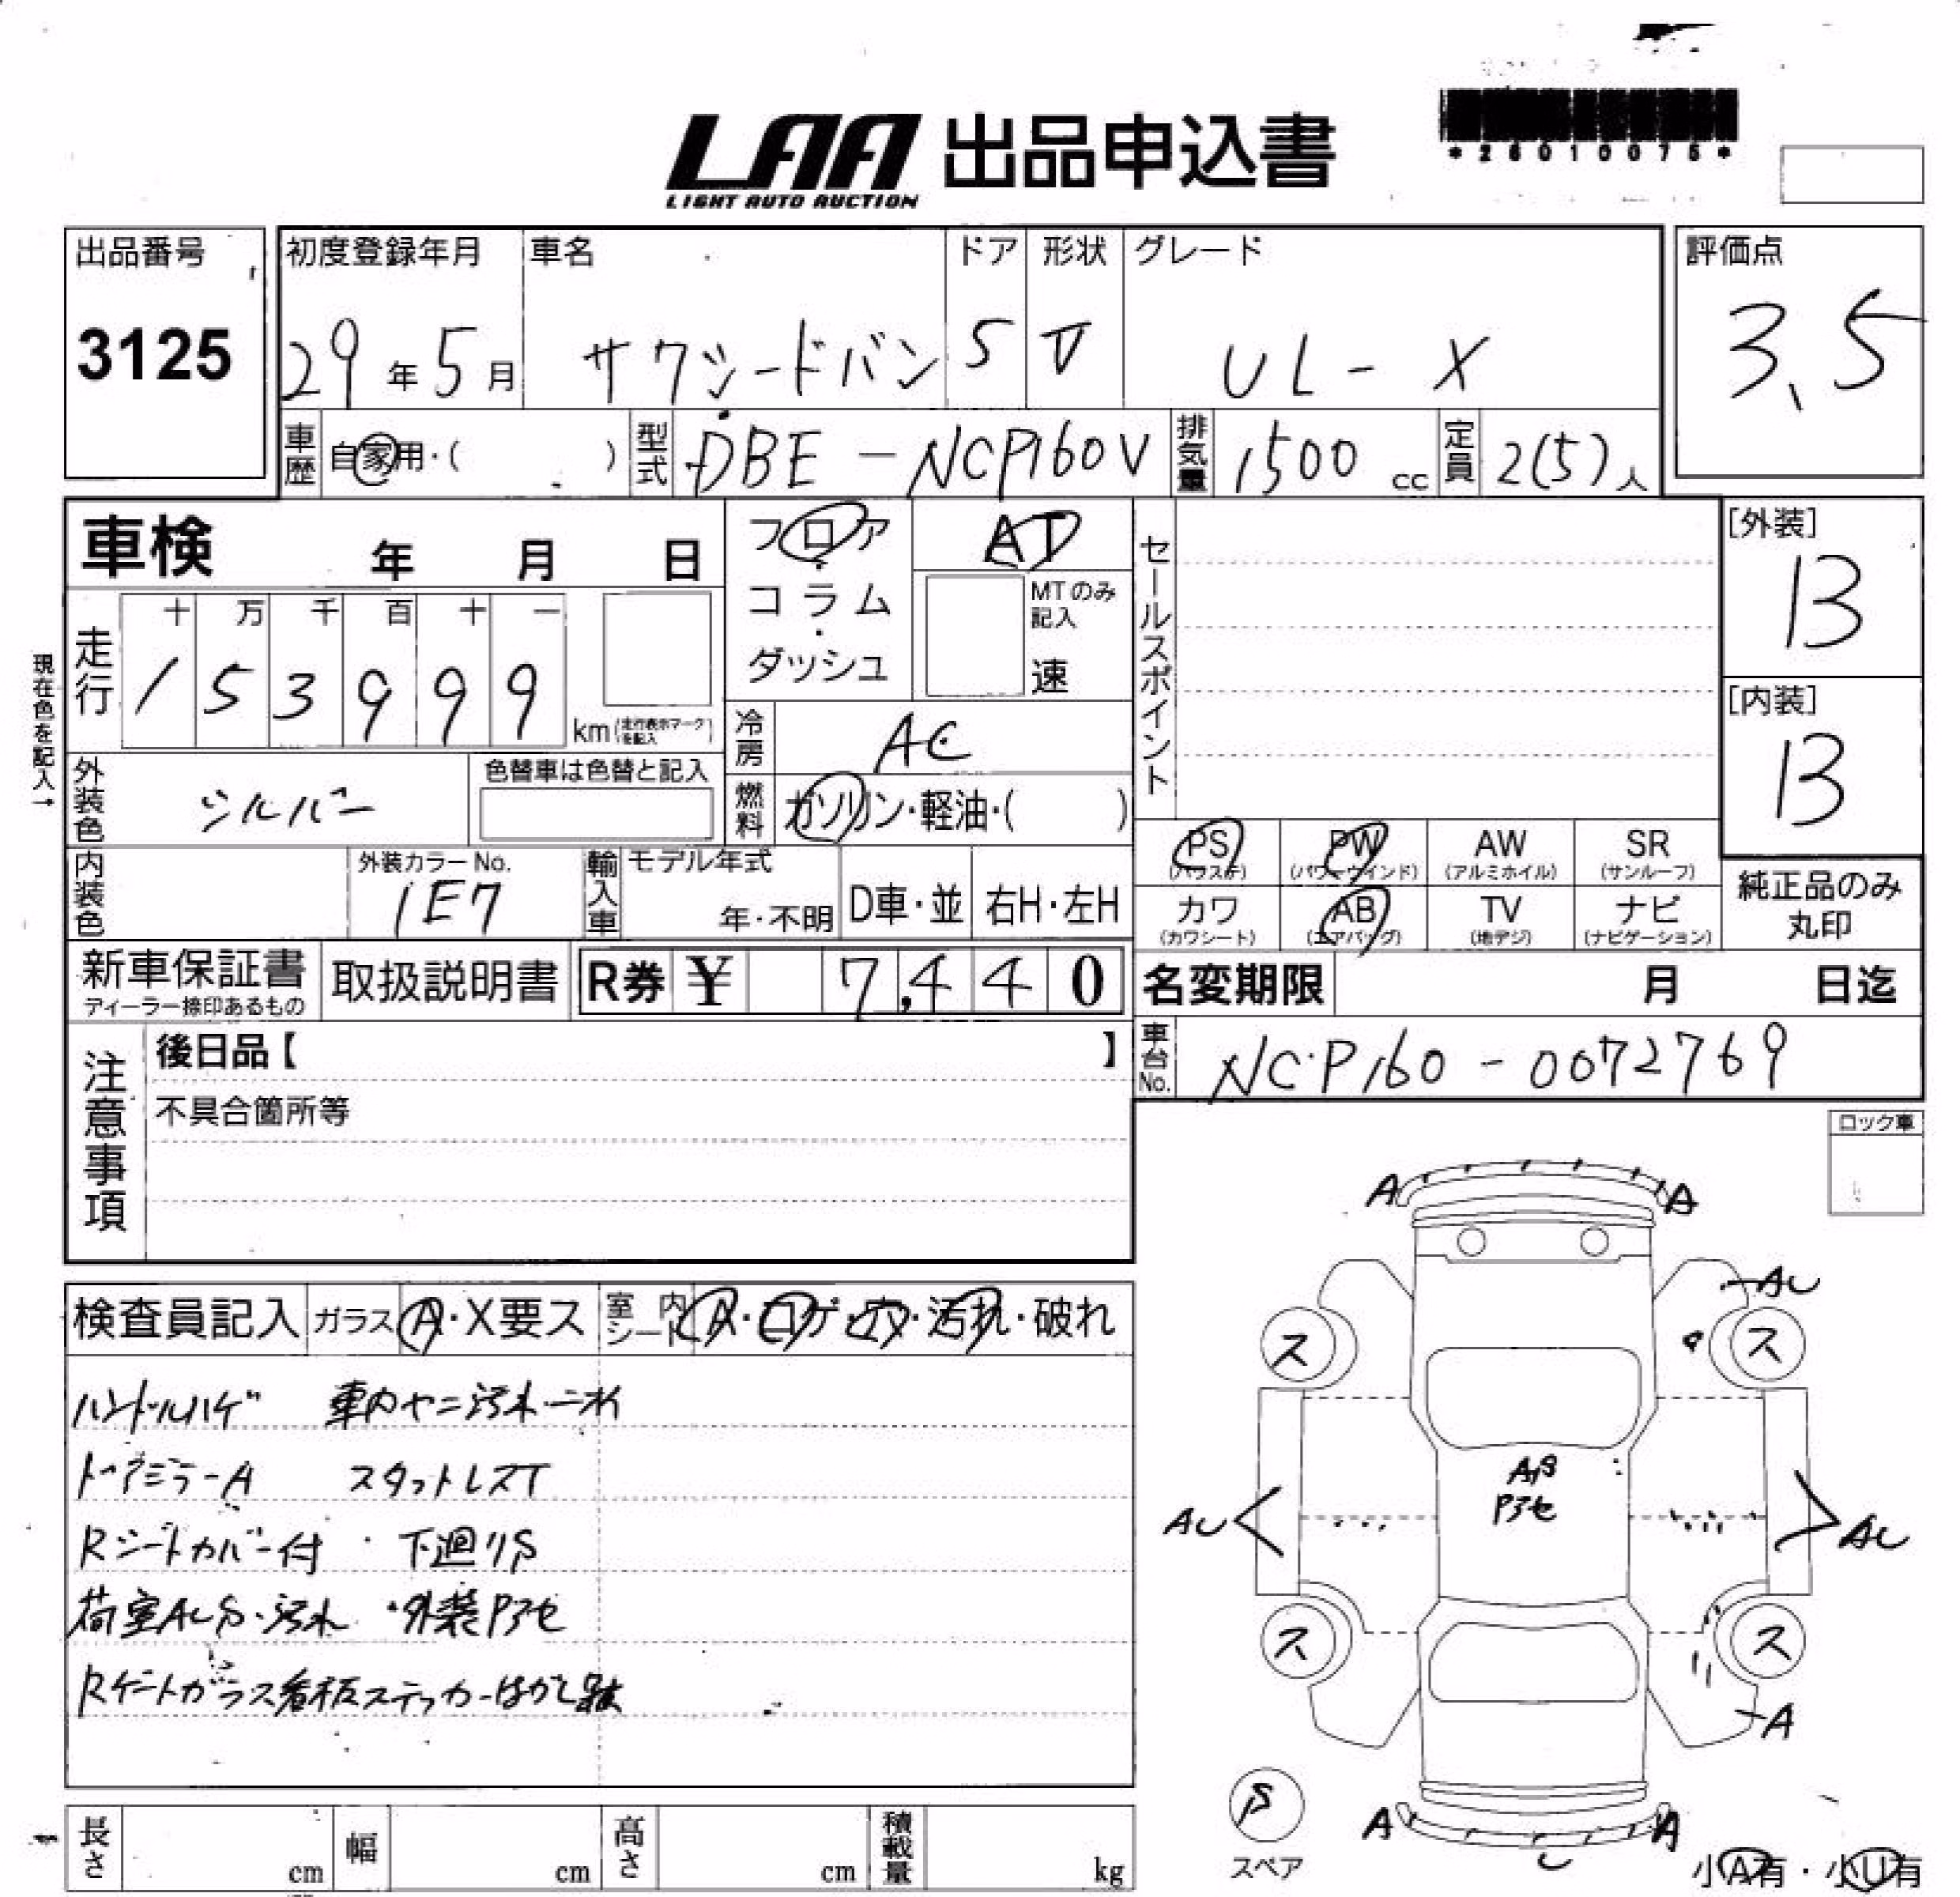 LAA 出品申込書
LIGHT AUTO AUCTION
*26010075*
出品番号
3125
初度登録年月
29年5月
車名
サクシードバン
ドア
5
形状
V
グレード
UL-X
評価点
3.5
車歴
自家用・( )
型式
DBE-NCP160V
排気量
1500 cc
定員
2(5)人
車検 年 月 日
フロア・コラム・ダッシュ
AT
MTのみ記入
速
セールスポイント
[外装]
B
[内装]
B
現在色を記入→
走行
十 万 千 百 十 一
1 5 3 9 9 9
km(走行表示マークを記入)
冷房
AC
外装色
シルバー
色替車は色替と記入
燃料
ガソリン・軽油・( )
PS (パワステ)
PW (パワーウインド)
AW (アルミホイル)
SR (サンルーフ)
カワ (カワシート)
AB (エアバッグ)
TV (地デジ)
ナビ (ナビゲーション)
純正品のみ
丸印
内装色
外装カラーNo.
1E7
輸入車
モデル年式
年・不明
D車・並
右H・左H
新車保証書
ディーラー捺印あるもの
取扱説明書
R券 ¥ 7,440
名変期限 月 日迄
車台No.
NCP160-0072769
注意事項
後日品【 】
不具合箇所等
ロック車
検査員記入 ガラス A・X要ス 室内シート A・コゲ・穴・汚れ・破れ
ハンドルハゲ 車内ヤニ汚れ・ニオイ
ドアミラーA スタットレスT
Rシートカバー付 下廻りS
荷室AUS・汚れ ・外装Pアセ
Rゲートガラス看板ステッカーはがし跡
A A
AU
ス ス
AS
Pアセ
AU AU
ス ス
A
S
スペア
A A
U
小A有・小U有
長さ cm
幅 cm
高さ cm
積載量 kg